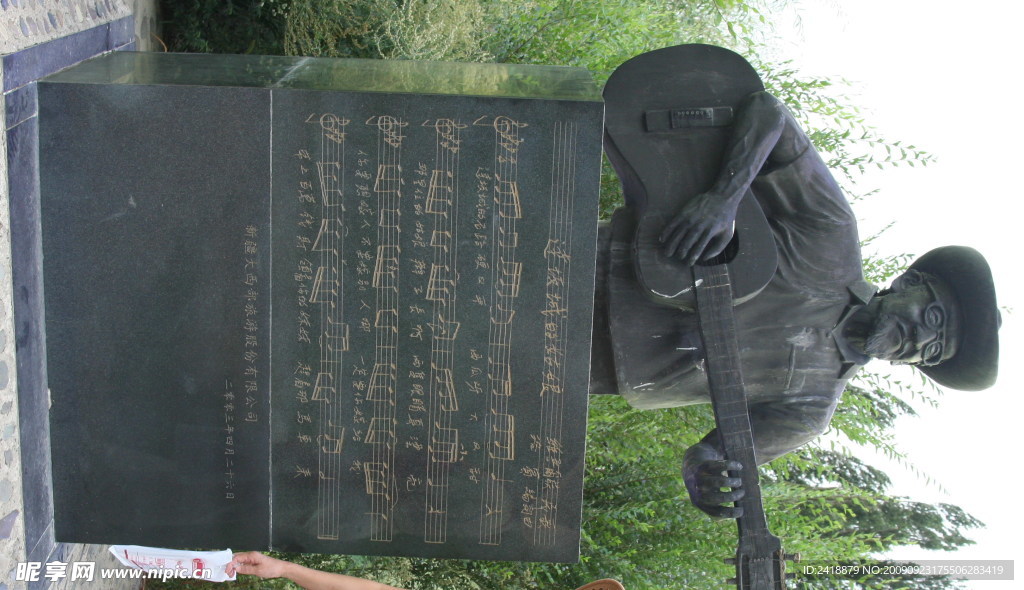 维吾尔族民歌
達坂城的石路硬又平 西瓜 大又甜
那里住的姑娘辫子长 两 眼睛真漂亮
你要 嫁人 不要嫁别人 一定要嫁给我
带上百 钱财 领着你的妹妹 赶着那马车来
新疆大西部旅游股份有限公司
二零零三年四月二十六日
昵享网 www.nipic.cn
ID:2418879 NO:20090923175506283419